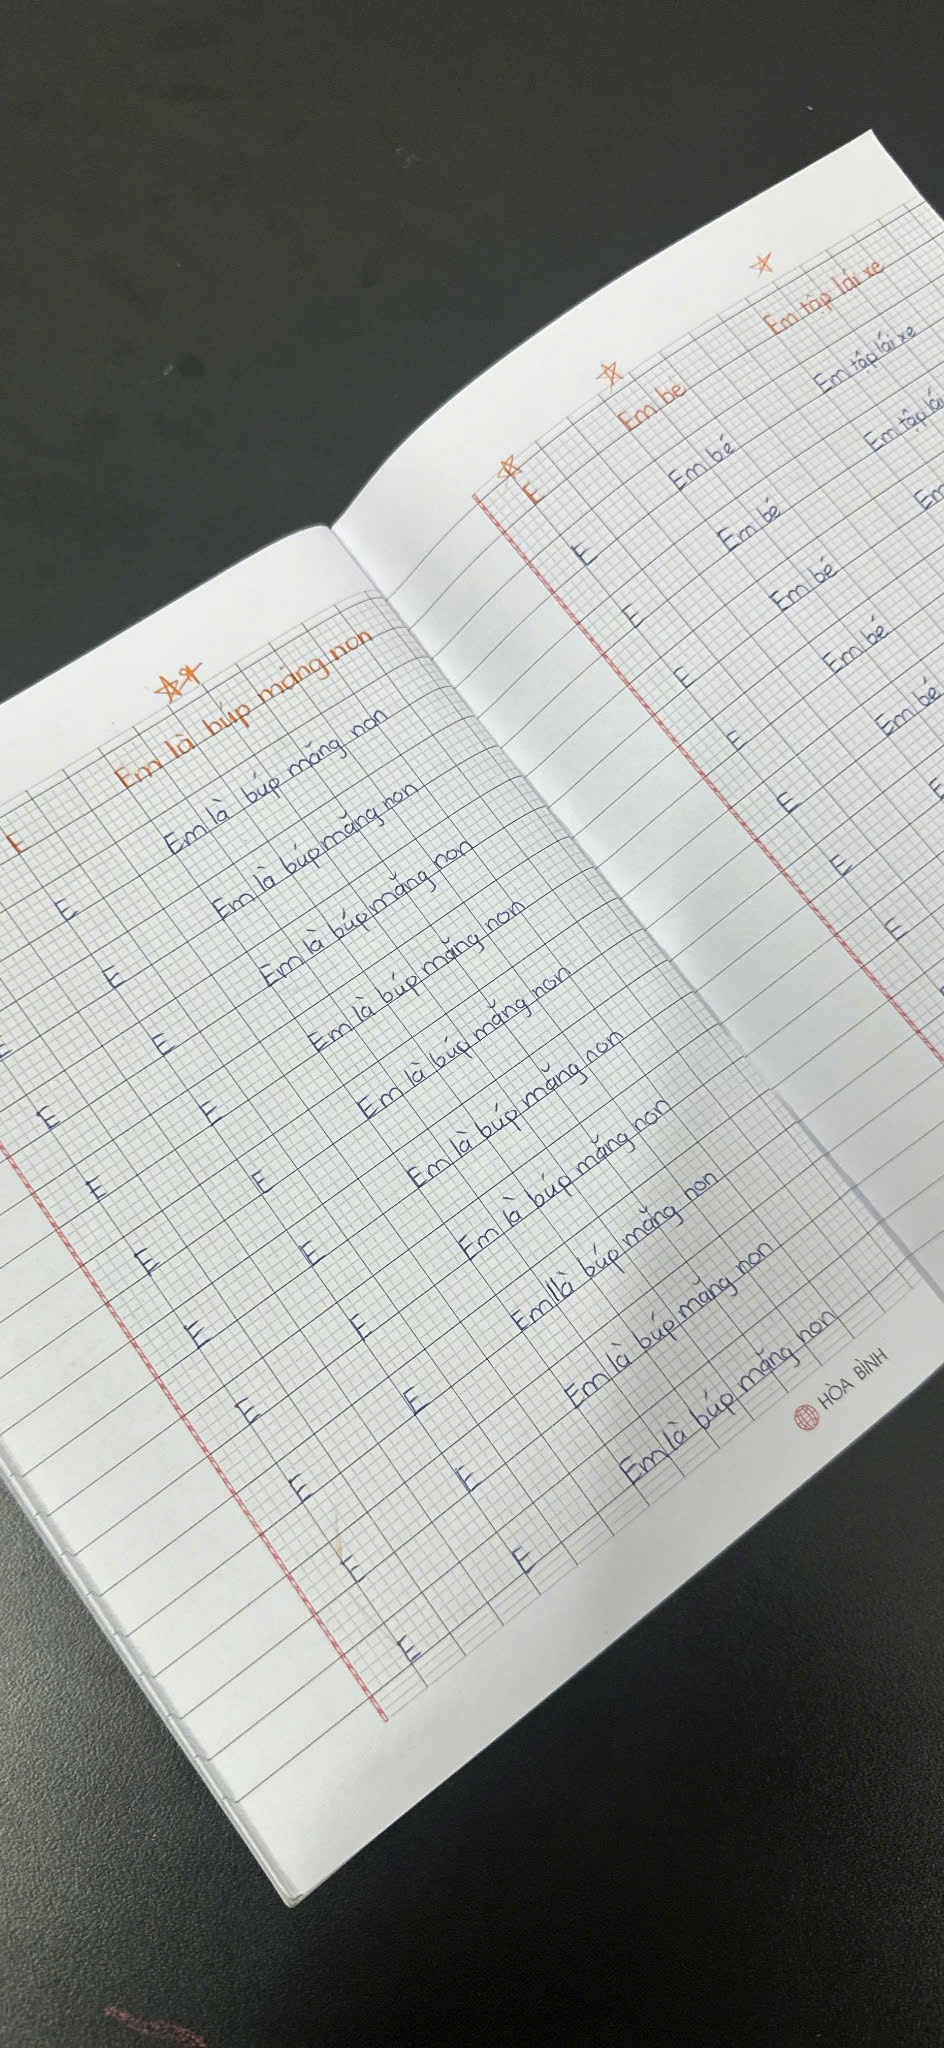 E Em là búp măng non
E Em là búp măng non
E Em là búp măng non
E E Em là búp măng non
E E Em là búp măng non
E E Em là búp măng non
E E Em là búp măng non
E E Em là búp măng non
E E Emllà búp măng non
E E Em là búp măng non
E E Em là búp măng non
E
HÒA BÌNH
E Em be Em tập lái xe
E Em bé Em tập lái xe
E Em bé Em tập lái
E Em bé Em
E Em bé
E Em bé
E E
E